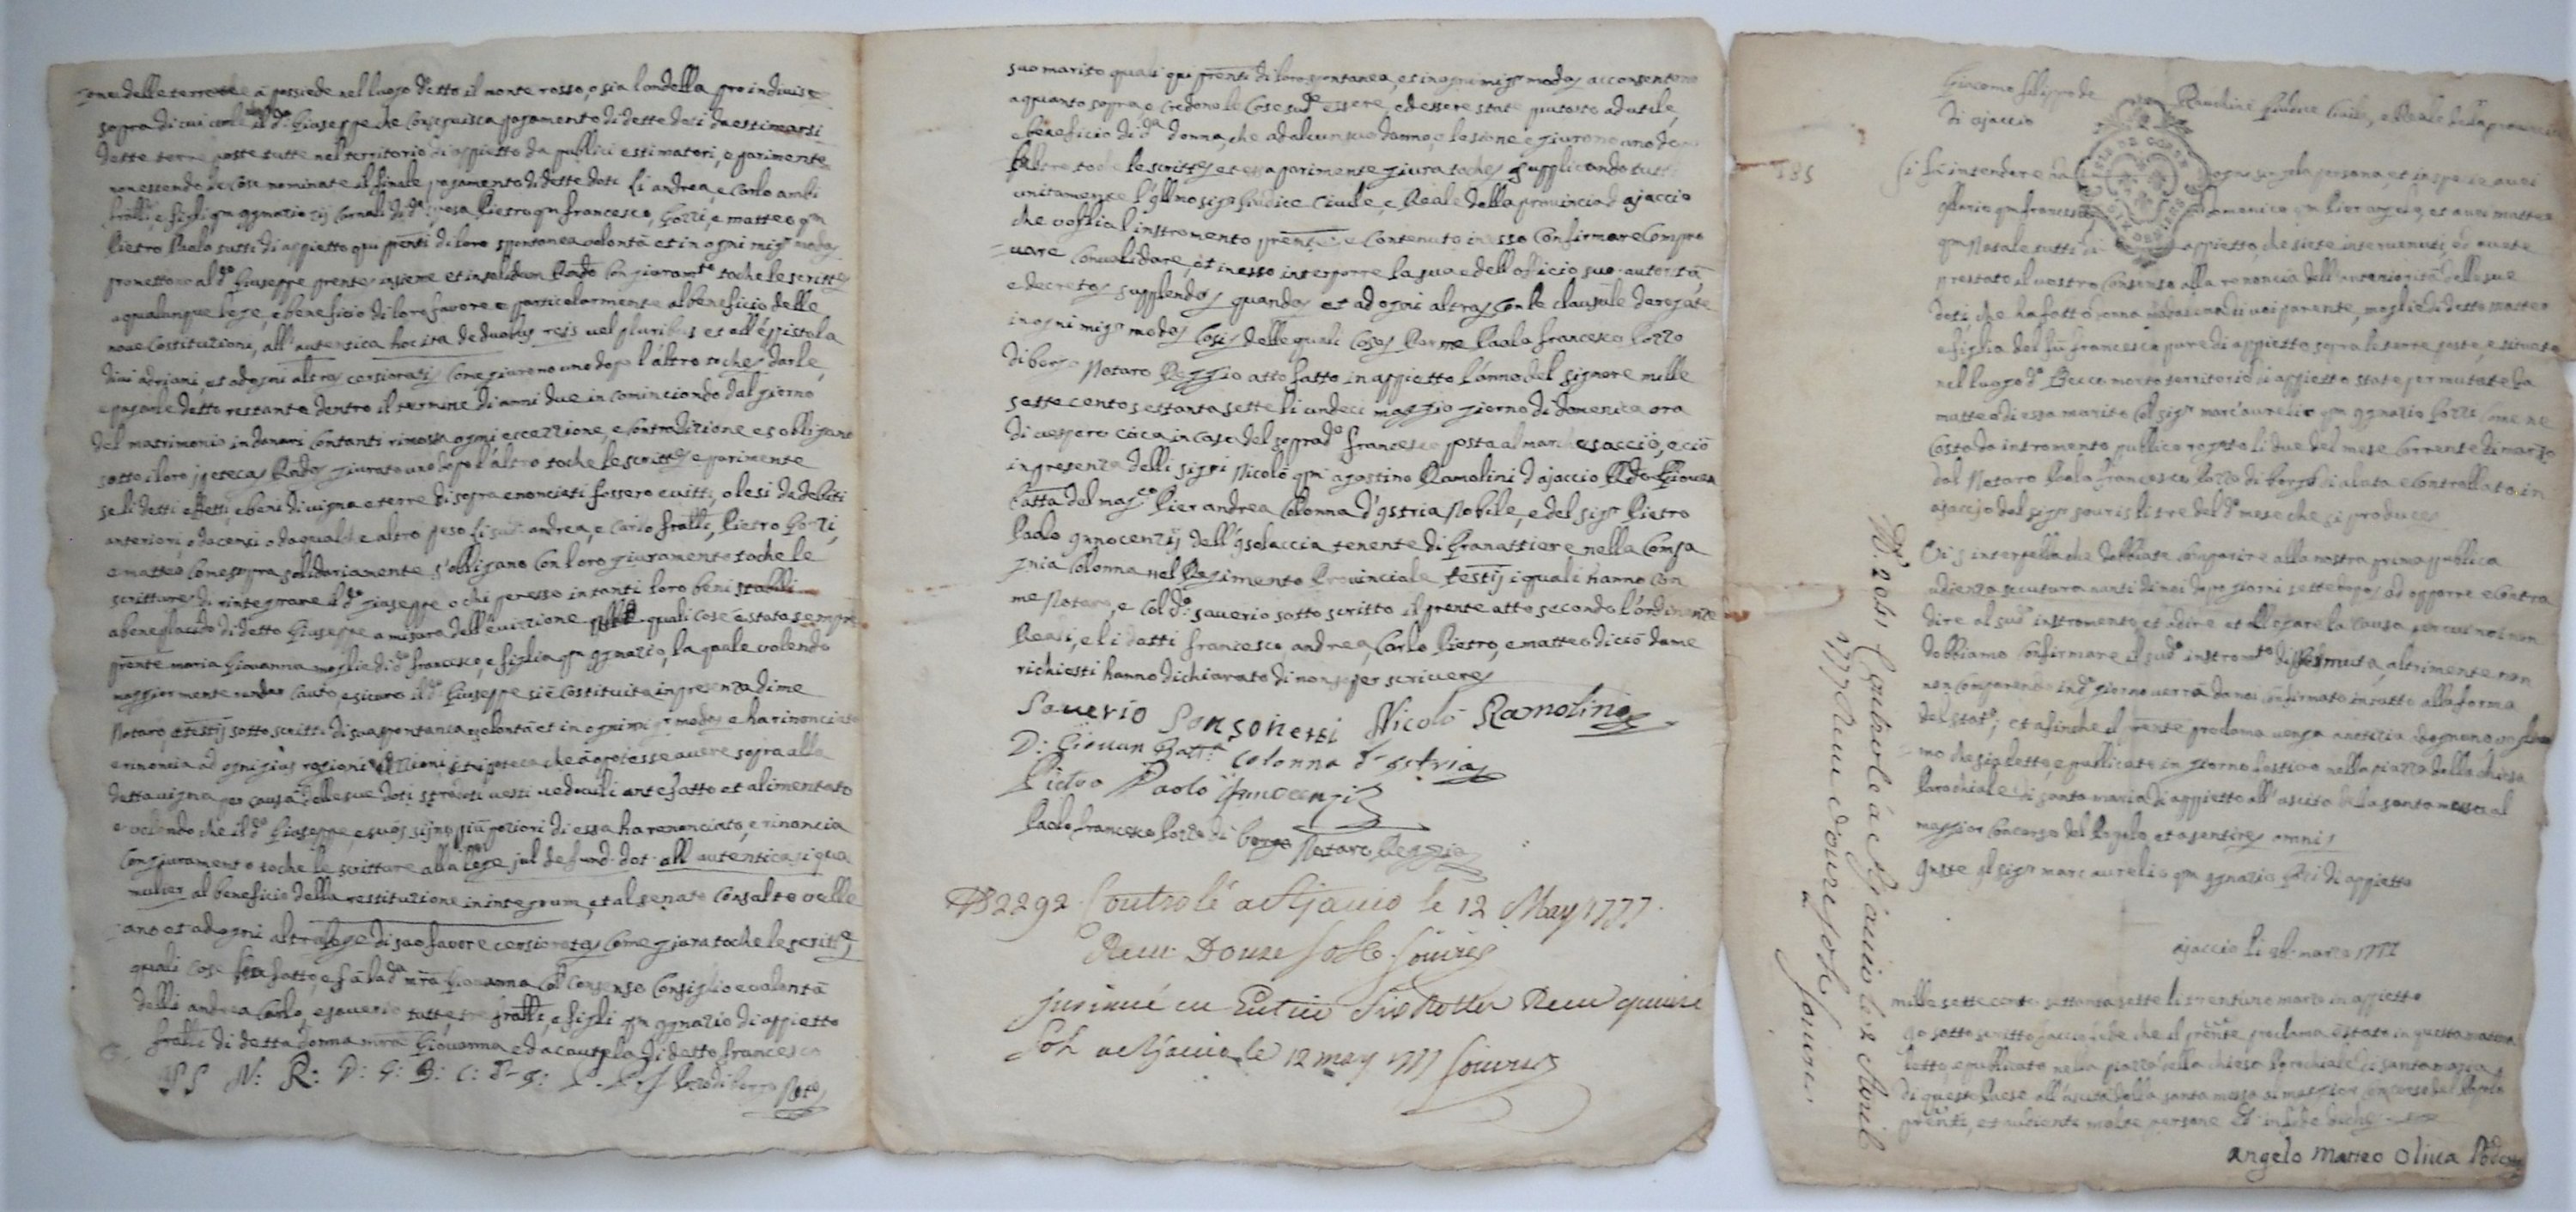 delle terre che possiede nel luogo detto il monte rosso, o sia londella pro indiviso
sopra di cui il d.º Giuseppe che conseguisca pagamento di dette doti da estimarsi
dette terre poste tutte nel territorio di appietto da publici estimatori, e parimente
non essendo le cose nominate il finale pagamento di dette dote li andrea, e Carlo ambi
fratelli, e figli qm ignazio di d.ª sposa Pietro qm francesco, Pozzi, e matteo qm
Pietro Paolo tutti di appietto qui p̄nti di loro spontanea volontà et in ogni migr modo
promettono al d.º Giuseppe p̄nte insieme et in solidum con giuram.to toche le scritt.e
a qualunque lege, e beneficio di loro favore e particolarmente al beneficio delle
nove Costituzioni, all'autentica hoc ita de duobus reis vel pluribus et all'epistola
divi adriani, et ad ogni altra cerziorati Come giurono uno dopo l'altro toches darle,
e pagarle detto restante dentro il termine di anni due in cominciando dal giorno
del matrimonio in danari Contanti rimossa ogni eccezzione, e Contradizione e s'obligano
sotto i loro ipoteca giurato uno dopo l'altro toche le scritt.e e parimente
se li detti effetti, e beni di vigna e terre di sopra enonciati fossero evitti, o lesi da debiti
anteriori, o da censi o da qualche altro peso li sud.i andrea, e Carlo fratelli, Pietro Pozzi,
e matteo Come sopra solidariamente s'obligano Con loro giuramento toche le
scritture di rintegrare il d.º giuseppe o chi per esso in tanti loro beni stabili
a beneplacito di detto Giuseppe a misura dell'evizzione quali cose è stata sempre
p̄nte maria Giovanna moglie di d.º francesco, e figlia qm ignazio, la quale volendo
maggiormente render cauto, e sicuro il d.º Giuseppe si è Costituita in presenza di me
Notaro, e testij sotto scritti di sua spontanea volontà et in ogni migr modo e ha rinonciato
e rinoncia ad ogni gius ragioni azzioni et ipoteca che à o potesse avere sopra alla
detta vigna per causa delle sue doti stradoti vesti vedovili antefatto et alimentato
e volendo che il d.º Giuseppe, e suoi siino più poziori di essa ha renonciato, e rinoncia
Con giuramento toche le scritture alla lege jul de fund. dot. all autentica si qua
mulier al beneficio della restituzione in integrum, et al senato Consulto velle
ano et ad ogni altra lege di suo favore cerziorata Come giura toche le scritt.e
quali cose ha fatto, e fà la d.ª m.ª Giovanna Col Consenso Consiglio e volontà
delli andrea Carlo, e saverio tutti, tre fratelli, e figli qm ignazio di appietto
fratelli di detta donna maria Giovanna ed a cautela di detto francesco
SS N: R: D: G: B: C: D: P. P. I Pozzo di borgo Not.º
suo marito quali qui p̄nti di loro spontanea, et in ogni migr modo acconsentono
a quanto sopra e credono le Cose sud.e essere, ed essere state piutosto ad utile,
e beneficio di d.ª donna, che ad alcun suo danno, e lesione e giurono uno dopo
l'altro toche le scritt.e et essa parimente giura toches supplicando tutti
unitamente l'Illmo sigr Giudice Civile, e Reale della provincia d'ajaccio
che voglia l'instromento p̄nte, e Contenuto in esso Confirmare Compro
vare Convalidare, et in esso interporre la sua e dell'officio suo autorità,
e decreto supplendo quando et ad ogni altra Con le clausule derogate
in ogni migr modo Cosi delle quali Cose Paolo francesco Pozzo
di borgo Notaro Reggio atto fatto in appietto l'anno del signore mille
sette cento settanta sette li undeci maggio giorno di domenica ora
di vespero circa in Casa del soprad.º francesco posta al marchesaccio, e ciò
in presenza delli sig.ri Nicolò qm agostino Ramolini d ajaccio Giovan
Batta del mag.co Pier andrea Colonna d'Istria Nobile, e del sigr Pietro
Paolo Innocenzij dell'Isolaccia tenente di Granattiere nella Compa
gnia Colonna nel Regimento Provinciale testij i quali hanno Con
me Notaro, e Col d.º saverio sotto scritto il p̄nte atto secondo l'ordinanze
Reali, e li detti francesco andrea, Carlo Pietro, e matteo di ciò da me
richiesti hanno dichiarato di non saper scrivere
Saverio Nicolò Ramolino
D: Giovan Batt.a Colonna d'Istria
Pietro Paolo Innocenzi
Paolo francesco Pozzo di borgo Notaro Reggio
N 2292 Controlé a Ajaccio le 12 May 1777
Recu Douze Sols Souris
Insinué en Entier Recu quinze
Sols a Ajaccio le 12 may 1777 Souris
Giacomo filippo de Giudice Civile, e Reale della provincia
di ajaccio
Si fà intendere ad ogni singola persona, et in specie a voi
Ilario qm francesco, domenico qm Pier angelo, et a voi matteo
qm Natale tutti di appietto, che siete intervenuti, ed avete
prestato il vostro Consenso alla renoncia dell'anteriorità delle sue
doti, che ha fatto donna madalena di voi parente, moglie di detto matteo
e figlia del fù francesco pure di appietto sopra le terre poste, e situate
nel luogo d.º Becco morto territorio di appietto state permutate da
matteo di essa marito Col sigr marc'aurelio qm ignazio Pozzi Come ne
Costa da instromento publico rogato li due del mese Corrente di marzo
dal Notaro Paolo francesco Pozzo di borgo di alata e Controllato in
ajaccio dal sigr souris li tre del d.º mese che si produce
Vi s'interpella che dobbiate Comparire alla nostra prima publica
udienza seccutura nanti di noi dopo giorni sette ad opporre e Contra
dire al sud.º instromento, et a dire et allegare la causa per cui noi non
dobbiamo Confirmare il sud.º instrom.to di Permuta, altrimente non
non Comparendo in d.º giorno verrà da noi Confirmato in tutto alla forma
del stat.º; et a finche il p̄nte proclama venga a notizia d'ognuno
mo che sia letto, e publicato in giorno festivo nella piazza della chiesa
Parochiale di santa maria di appietto all'uscita della santa messa al
maggior Concorso del Popolo, et a sentire omni
Inste il sigr marc aurelio qm ignazio Pozzi di appietto
ajaccio li 26 marzo 1777
mille sette cento settanta sette li trentuno marzo in appietto
Io sotto scritto faccio fede che il p̄nte proclama è stato in questa mattina
letto, e publicato nella piazza della chiesa Parochiale di santa maria
di questo Paese all'uscita della santa messa al maggior Concorso del Popolo
p̄nti, et audienti molte persone Et in fede
angelo Matteo Oliva Podestà
Controlé a Ajaccio le 2 Avril
1777 Recu douze sols Souris